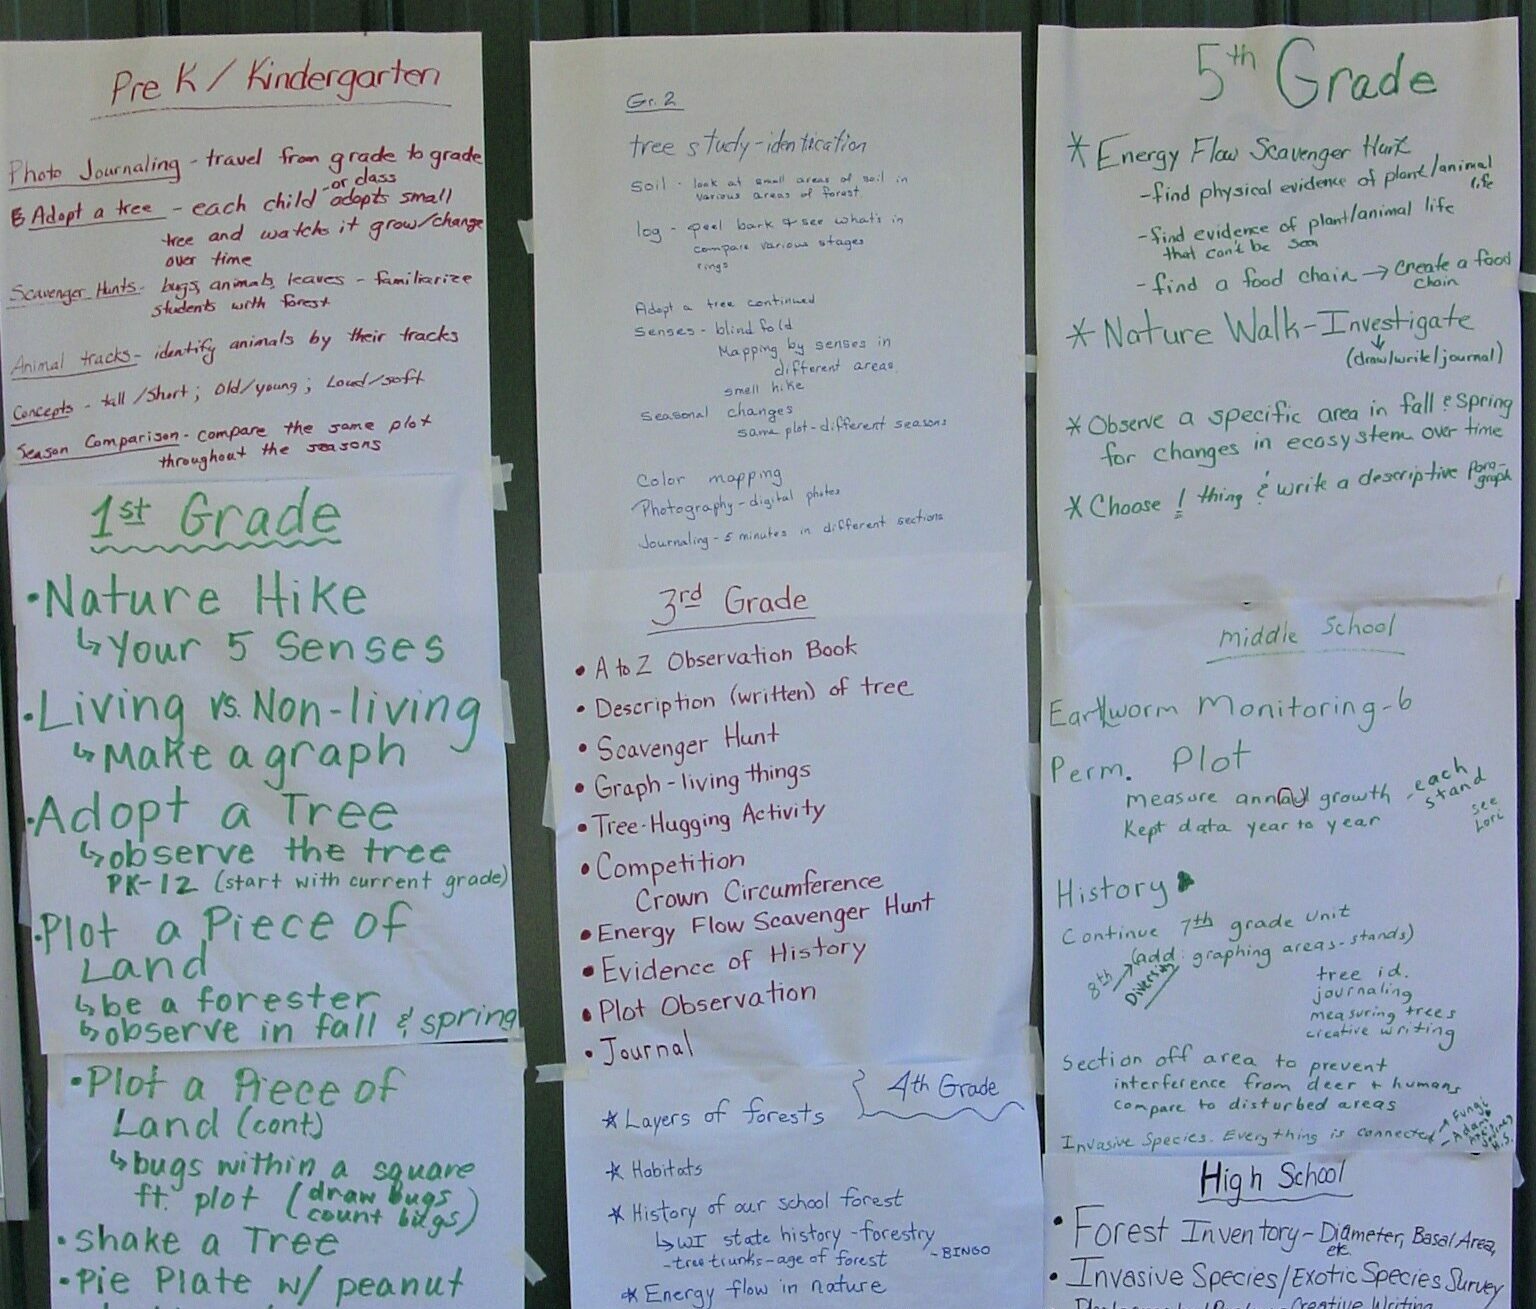 Pre K / Kindergarten
Photo Journaling - travel from grade to grade
-or class
& Adopt a tree - each child adopts small
tree and watch it grow/change
over time
Scavenger Hunts - bugs, animals, leaves - familiarize
students with forest
Animal tracks - identify animals by their tracks
Concepts - tall/short; Old/young; Loud/soft
Season Comparison - compare the same plot
throughout the seasons
1st Grade
• Nature Hike
↳ Your 5 Senses
• Living vs. Non-living
↳ Make a graph
• Adopt a Tree
↳ observe the tree
PK-12 (start with current grade)
• Plot a Piece of
Land
↳ be a forester
↳ observe in fall & spring
• Plot a Piece of
Land (cont)
↳ bugs within a square
ft. plot (draw bugs
count bugs)
• Shake a Tree
• Pie Plate w/ peanut
Gr. 2
tree study - identification
soil - look at small areas of soil in
various areas of forest
log - peel bark & see what's in
compare various stages
rings
Adopt a tree continued
Senses - blind fold
Mapping by senses in
different areas
smell hike
Seasonal changes
same plot - different seasons
Color mapping
Photography - digital photos
Journaling - 5 minutes in different sections
3rd Grade
• A to Z Observation Book
• Description (written) of tree
• Scavenger Hunt
• Graph - living things
• Tree-Hugging Activity
• Competition
Crown Circumference
• Energy Flow Scavenger Hunt
• Evidence of History
• Plot Observation
• Journal
4th Grade
* Layers of forests
* Habitats
* History of our school forest
↳ WI state history - forestry
- tree trunks - age of forest - BINGO
* Energy flow in nature
5th Grade
* Energy Flow Scavenger Hunt
- find physical evidence of plant/animal
life
- find evidence of plant/animal life
that can't be seen
- find a food chain → create a food
chain
* Nature Walk - Investigate
(draw/write/journal)
* Observe a specific area in fall & spring
for changes in ecosystem over time
* Choose 1 thing & write a descriptive para-
graph
Middle School
Earthworm Monitoring - 6
Perm. Plot
measure annual growth - each
stand
Kept data year to year
see
Lori
History
Continue 7th grade unit
8th → (add: graphing areas - stands)
Diversity
tree id.
journaling
measuring trees
creative writing
Section off area to prevent
interference from deer + humans
compare to disturbed areas
Invasive Species. Everything is connected
- Fungi
H.S.
High School
• Forest Inventory - Diameter, Basal Area,
etc.
• Invasive Species/Exotic Species Survey
Creative Writing